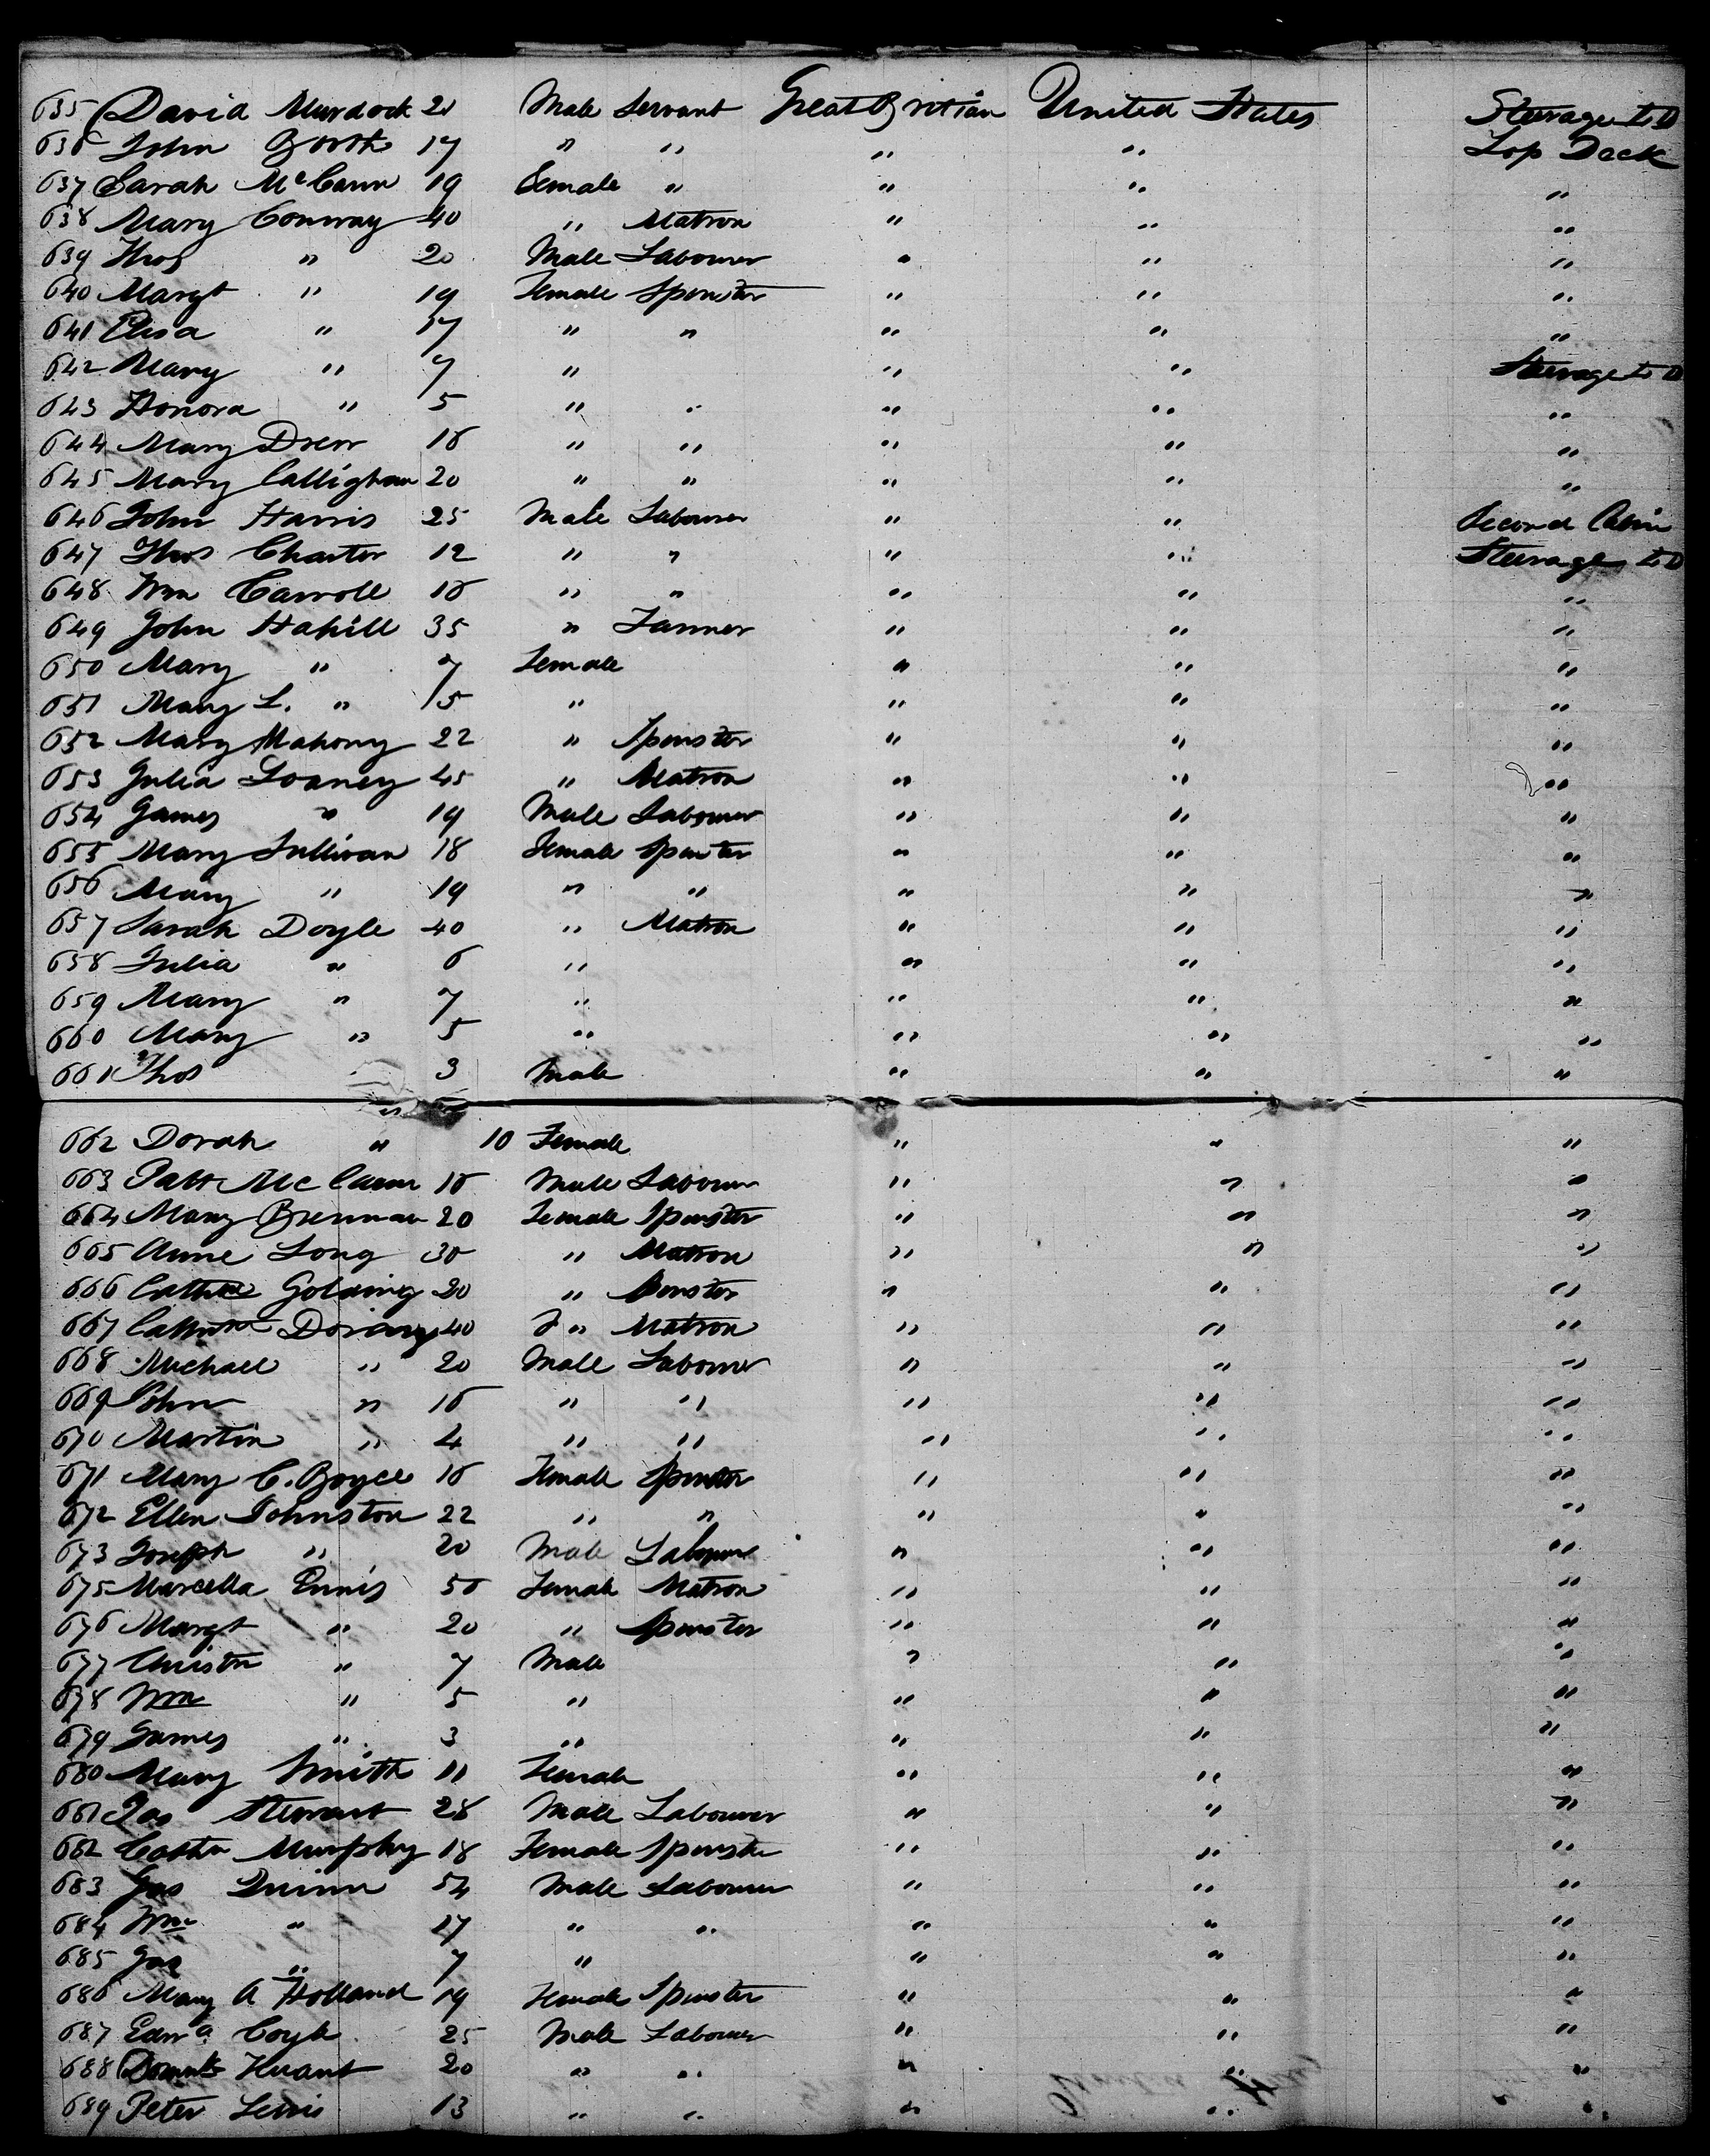 635 David Murdock 20 Male Servant Great Britian United States Steerage to D
636 John Booth 17 " " " " Top Deck
637 Sarah McCann 19 Female " " " "
638 Mary Conway 40 " Matron " " "
639 Thos " 20 Male Labourer " " "
640 Margt " 19 Female Spinster " " "
641 Elisa " 17 " " " " "
642 Mary " 7 " " " Steerage to D
643 Honora " 5 " " " " "
644 Mary Drew 16 " " " " "
645 Mary Callighan 20 " " " " "
646 John Harris 25 Male Labourer " " Second Cabin
647 Thos Charter 12 " " " " Steerage to D
648 Wm Carroll 16 " " " " "
649 John Hahill 35 " Farmer " " "
650 Mary " 7 Female " " "
651 Mary L. " 5 " " " "
652 Mary Mahony 22 " Spinster " " "
653 Julia Loaney 45 " Matron " " "
654 James " 19 Male Labourer " " "
655 Mary Sullivan 18 Female Spinster " " "
656 Mary " 19 " " " " "
657 Sarah Doyle 40 " Matron " " "
658 Julia " 6 " " " "
659 Mary " 7 " " " "
660 Mary " 5 " " " "
661 Thos " 3 Male " " "
662 Dorah " 10 Female " " "
663 Patt McCann 16 Male Labourer " " "
664 Mary Brennan 20 Female Spinster " " "
665 Anne Long 30 " Matron " " "
666 Cathne Golding 20 " Spinster " " "
667 Cathne 40 " Matron " " "
668 Michael " 20 Male Labourer " " "
669 John " 16 " " " " "
670 Martin " 4 " " " " "
671 Mary C. Boyce 16 Female Spinster " " "
672 Ellen Johnston 22 " " " " "
673 Joseph " 20 Male Labourer " " "
675 Marcella Ennis 50 Female Matron " " "
676 Margt " 20 " Spinster " " "
677 Christn " 7 Male " " "
678 Wm " 5 " " " "
679 James " 3 " " " "
680 Mary Smith 11 Female " " "
681 Jas Stewart 28 Male Labourer " " "
682 Cathn Murphy 18 Female Spinster " " "
683 Jas Quinn 54 Male Labourer " " "
684 Wm " 17 " " " " "
685 Jas " 7 " " " "
686 Mary A Holland 19 Female Spinster " " "
687 Edwd Coyle 25 Male Labourer " " "
688 20 " " " " "
689 Peter Lewis 13 " " " " "